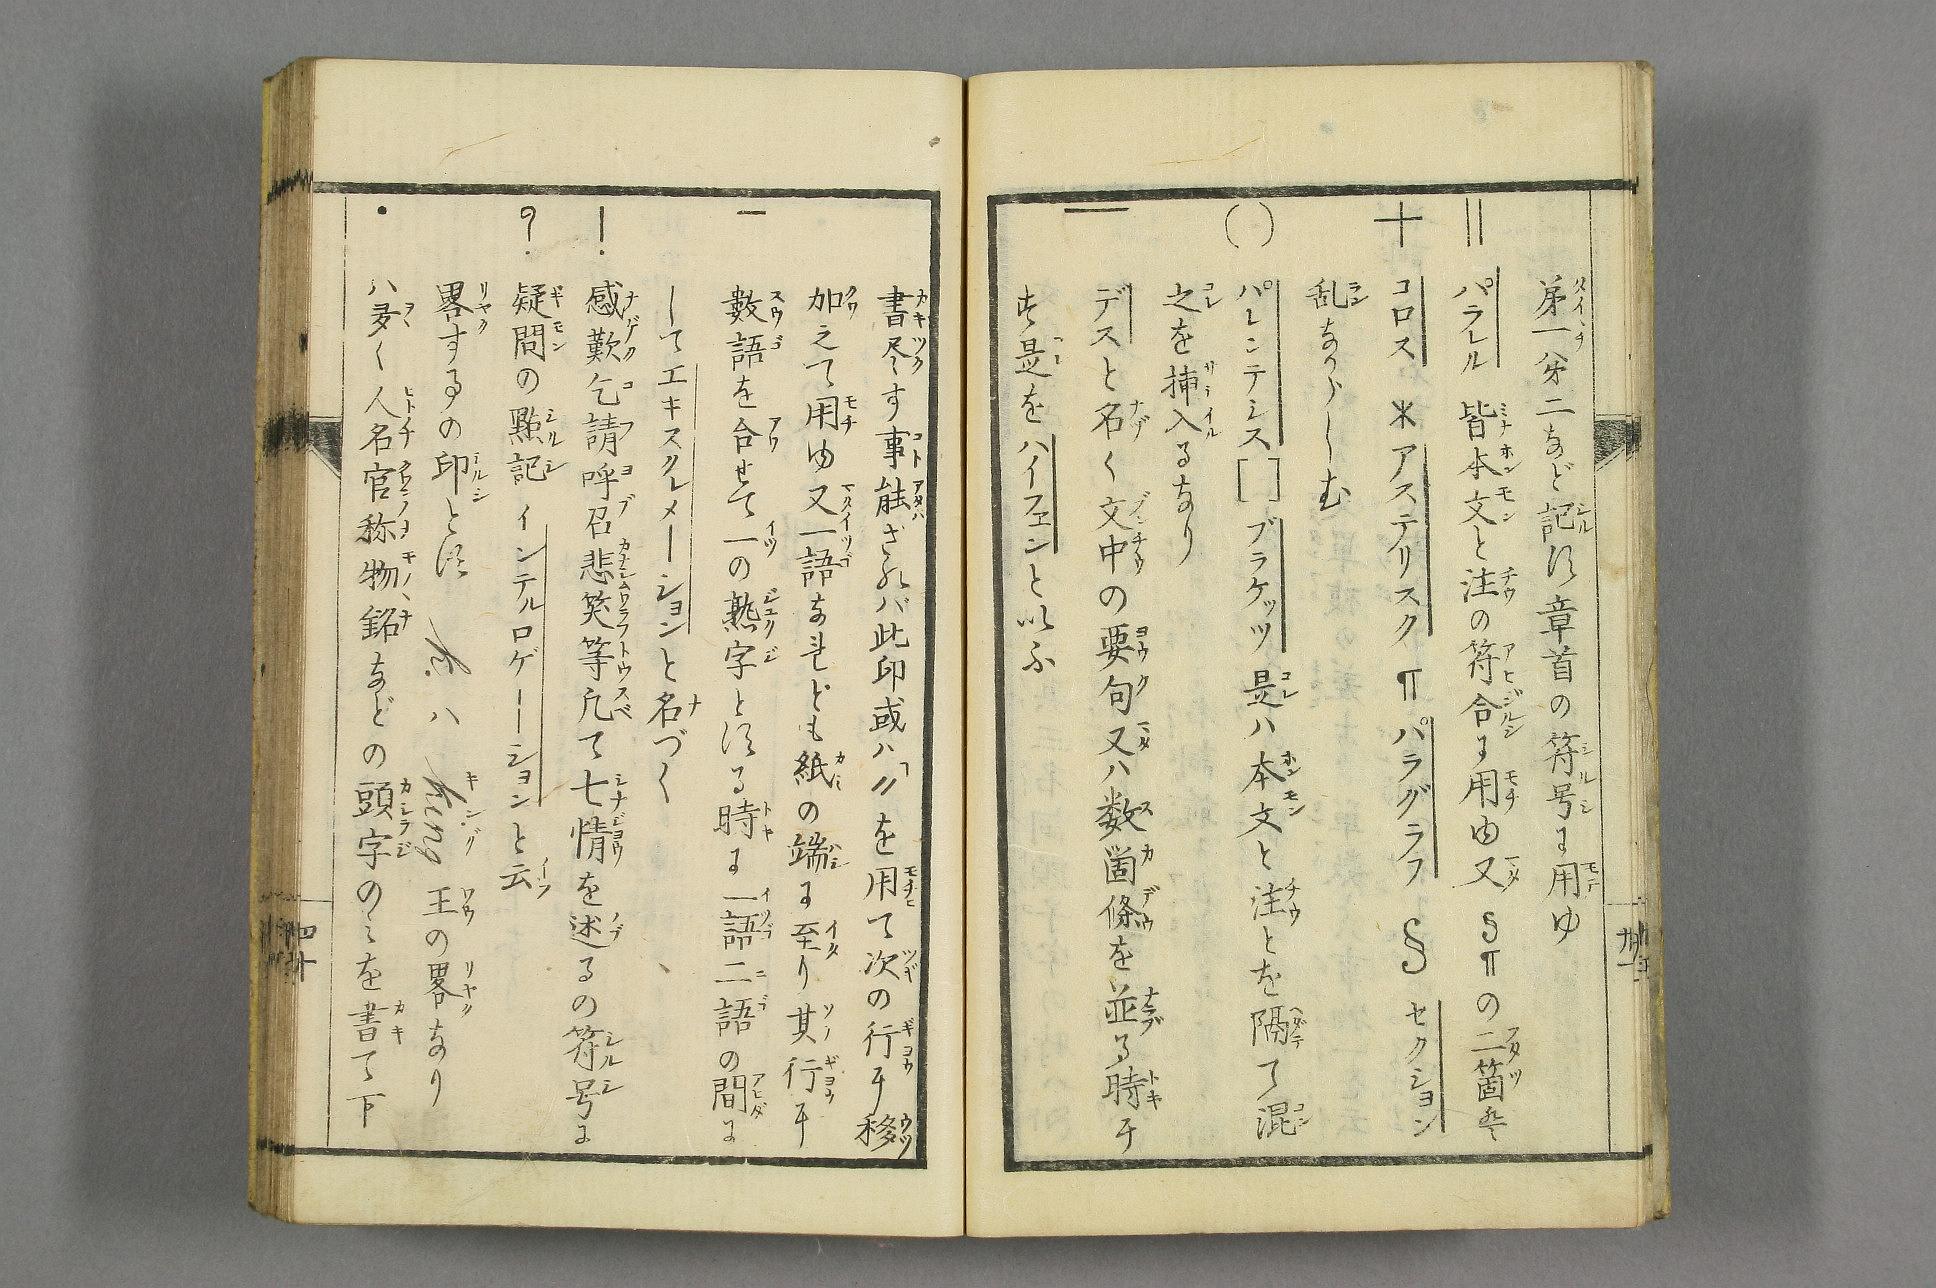 第一第二など記す章首の符号に用ゆ
‖ パラレル 皆本文と注の符合に用ゆ又§¶の二箇は
十 コロス * アステリスク ¶ パラグラフ § セクション
乱なからしむ
() パレンテシス [] ブラケッツ 是ハ本文と注とを隔て混
之を挿入るなり
— デスと名く文中の要句又ハ数箇條を並る時
是をハイフェンと以ふ
書尽す事能ざれバ此印或ハ〃を用て次の行に移
加えて用ゆ又一語なれども紙の端に至り其行に
- 數語を合せて一の熟字とする時に一語二語の間に
してエキスクレメーションと名づく
! 感歎乞請呼召悲笑等凡て七情を述るの符号に
? 疑問の點記インテルロゲーションと云
畧するの印とす ハ 王の畧なり
. ハ多く人名官称物銘などの頭字のミを書て下